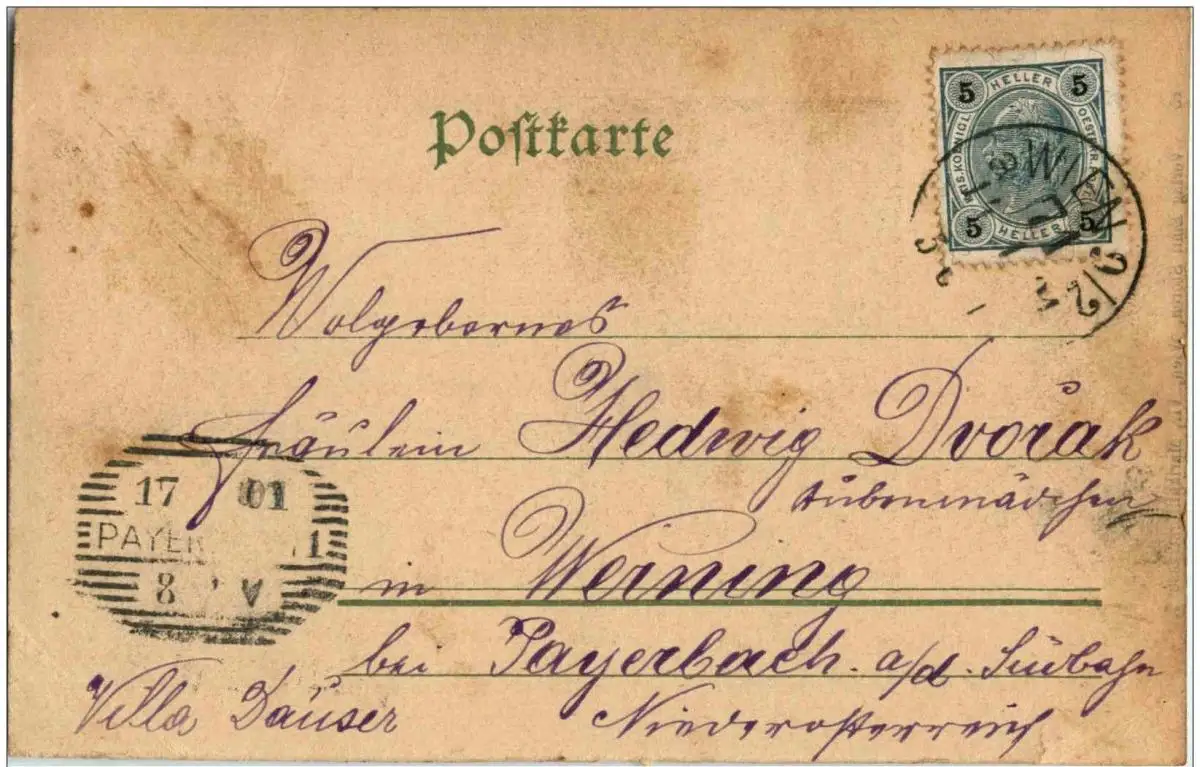 Postkarte
5 HELLER 5
KAIS. KOENIGL. OESTERR.
5 HELLER 5
WIEN 9/2
Wolgebornes
Fräulein Hedwig Dvořak
Stubenmädchen
in Werning
bei Payerbach a/d. Südbahn
Niederosterreich
Villa Däuser
17 01
PAYER 1
8